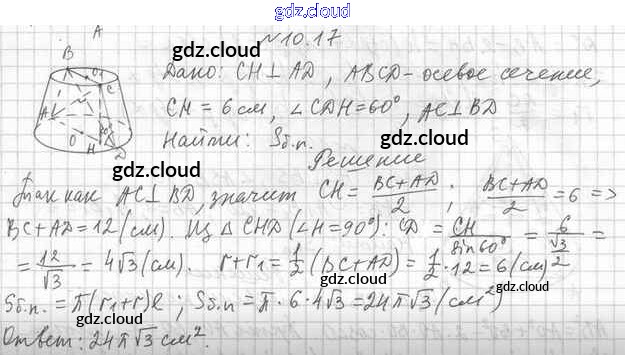 gdz.cloud
A
№10.17
gdz.cloud
Дано: CH⊥AD, ABCD-осевое сечение,
gdz.cloud
CH = 6 см, ∠CDH=60°, AC⊥BD
gdz.cloud
Найти: Sб.п.
gdz.cloud
B O₁ C
A O H 60° D
Решение
gdz.cloud
Так как AC⊥BD, значит CH = (BC+AD)/2 ; (BC+AD)/2 = 6 =>
BC+AD=12 (см). Из △ CHD (∠H=90°): CD = CH/sin60° = 6/(√3/2) =
gdz.cloud
= 12/√3 = 4√3 (см). r+r₁ = 1/2 (BC+AD) = 1/2 · 12 = 6 (см)
gdz.cloud
Sб.п. = π(r₁+r)ℓ ; Sб.п = π · 6 · 4√3 = 24π√3 (см²)
gdz.cloud
Ответ: 24π√3 см².
gdz.cloud